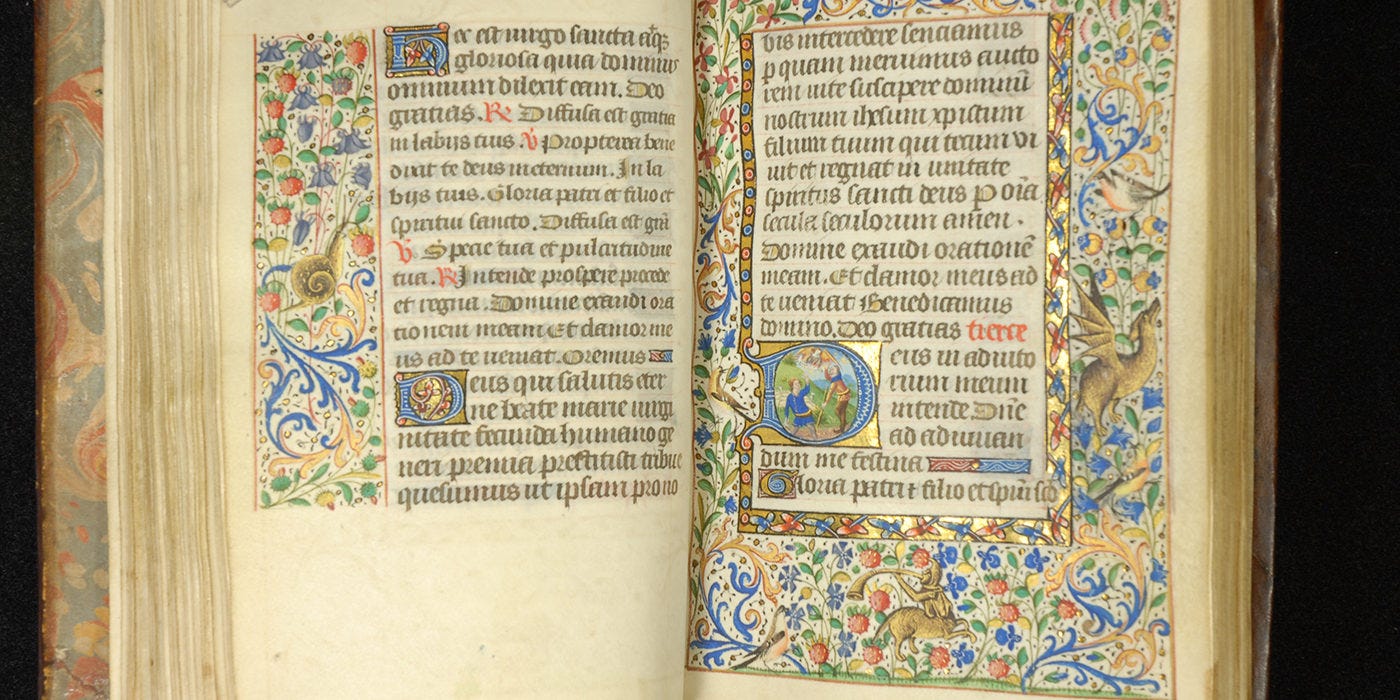 Hec est uirgo sancta atqꝫ
gloriosa quia dominus
omnium dilexit eam. Deo
gratias. R Diffusa est gratia
in labijs tuis. V Propterea bene
dixit te deus ineternum. In la
bijs tuis. Gloria patri et filio et
spiritui sancto. Diffusa est grā
V Specie tua et pulcritudine
tua. R Intende prospere procede
et regna. Domine exaudi ora
tionem meam Et clamor me
us ad te ueniat. Oremus
Deus qui salutis eter
ne beate marie uirgi
nitate fecunda humano ge
neri premia prestitisti tribue
quesumus ut ipsam pro no
bis intercedere senciamus
p quam meruimus aucto
rem uite suscipere dominū
nostrum ihesum xpistum
filium tuum qui tecum vi
uit et regnat in unitate
spiritus sancti deus P oīa
secula seculorum amen.
Domine exaudi orationē
meam. Et clamor meus ad
te ueniat Benedicamus
domino. Deo gratias tierce
Deus in adiuto
rium meum
intende Dn̄e
ad adiuuan
dum me festina
Gloria patri ⁊ filio et spiui scō